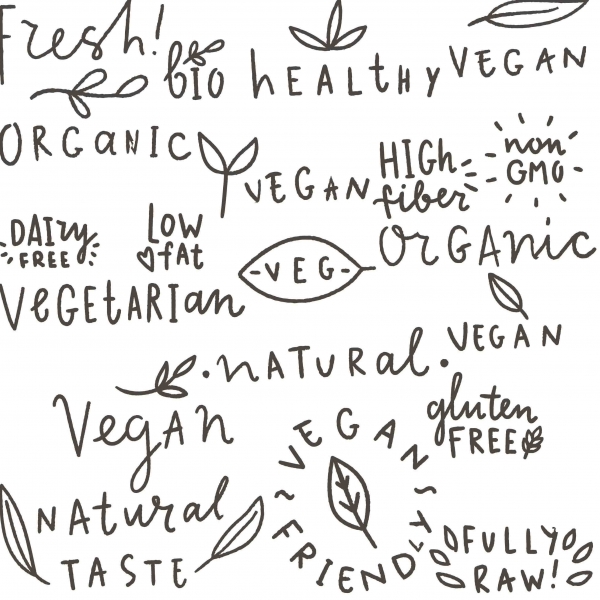 Fresh!
bio
hEALthy
VEGAN
ORGaNIC
VEGAN
HIGh
fiber
non
GMO
DAIry
FREE
Low
fAt
-VEG-
OrGANic
VeGEtARIan
VEGAN
·nATURal·
VegAn
gluten
FREE
VEGANS
FRIENDLY
NAtural
TASTE
FULLY
RAW!